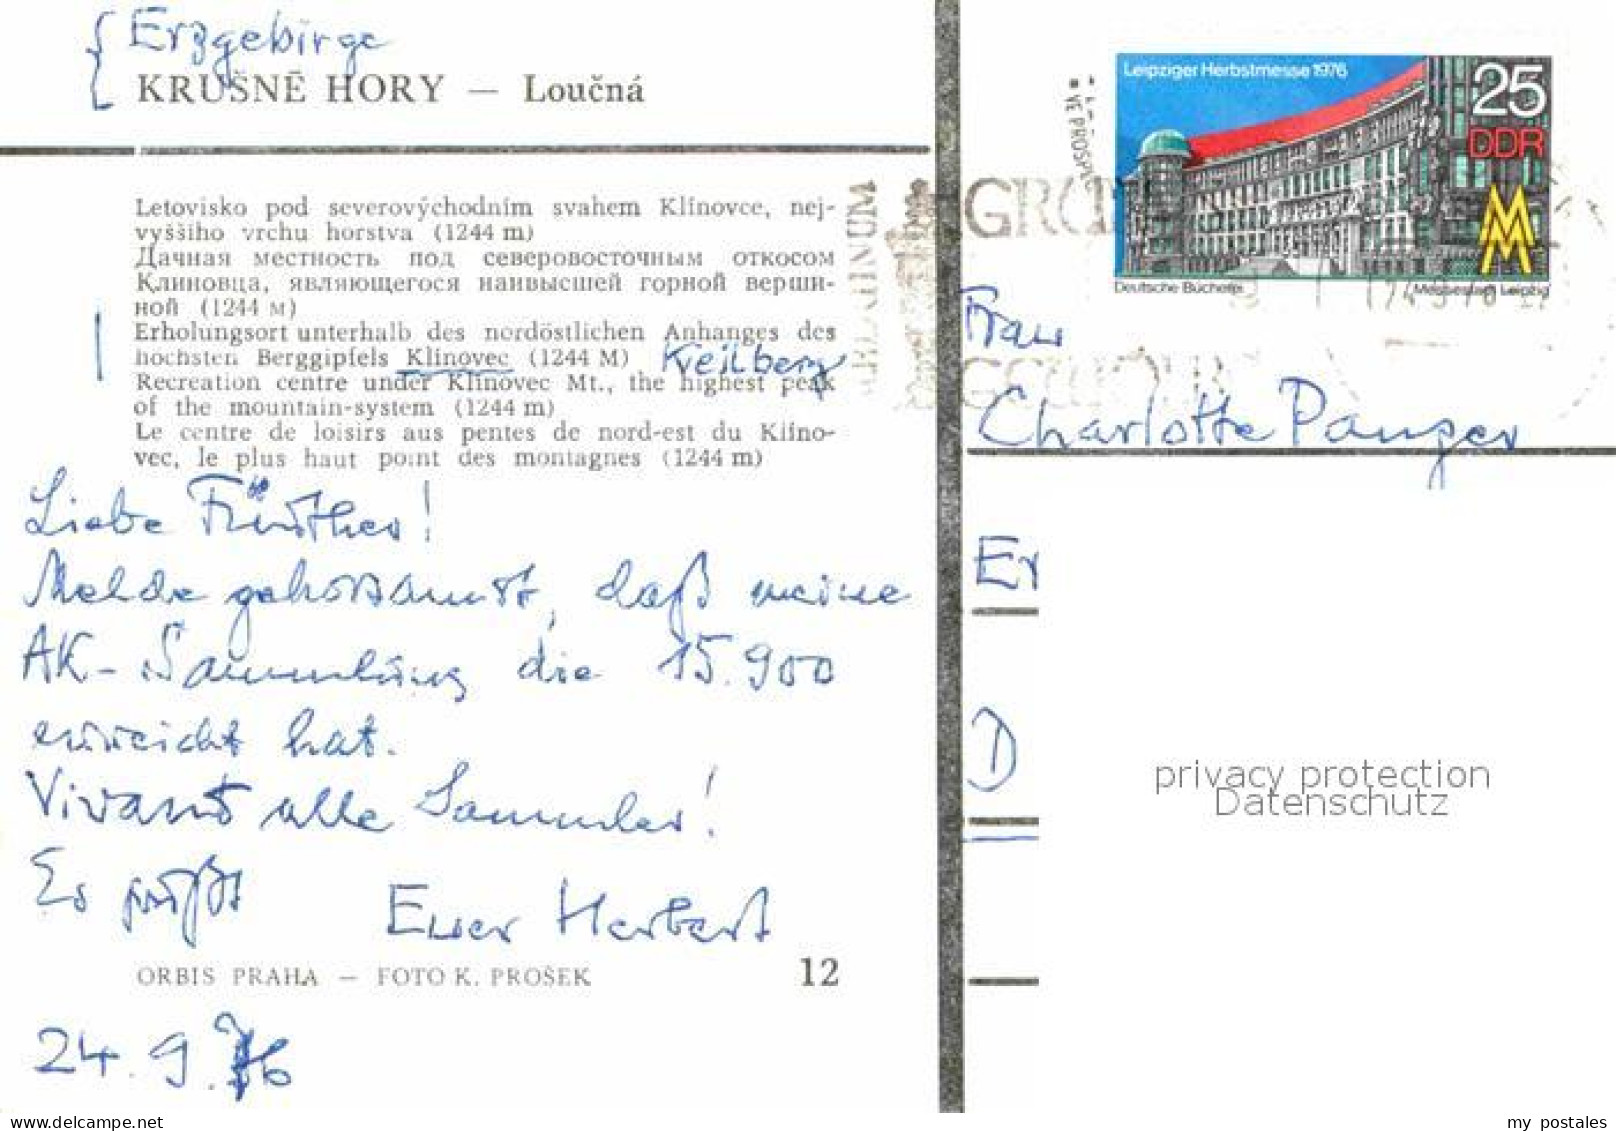 Erzgebirge
KRUŠNÉ HORY — Loučná
Letovisko pod severovýchodním svahem Klínovce, nej-
vyššího vrchu horstva (1244 m)
Дачная местность под северовосточным откосом
Клиновца, являющегося наивысшей горной верши-
ной (1244 м)
Erholungsort unterhalb des nordöstlichen Anhanges des
höchsten Berggipfels Klínovec (1244 M) Keilberg
Recreation centre under Klínovec Mt., the highest peak
of the mountain-system (1244 m)
Le centre de loisirs aus pentes de nord-est du Klíno-
vec, le plus haut point des montagnes (1244 m)
Liebe !
Melde gehorsamst, daß meine
AK-Sammlung die 15.900
erreicht hat.
Vivant alle Sammler!
Es grüßt Euer Herbert
ORBIS PRAHA — FOTO K. PROŠEK 12
24.9.76
Leipziger Herbstmesse 1976
25
DDR
MM
Deutsche Bücherei Messestadt Leipzig
Frau
Charlotte Panzer
Er
D
privacy protection
Datenschutz
www.delcampe.net
my_postales